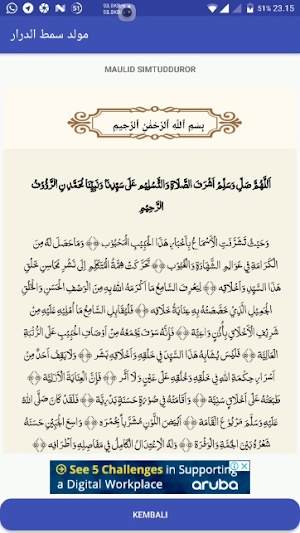 93.8KB/s
98.8KB/s
51% 23.15
مولد سمط الدرار
MAULID SIMTUDDUROR
بِسْمِ ٱللَّهِ ٱلرَّحْمَٰنِ ٱلرَّحِيمِ
اَللّٰهُمَّ صَلِّ وَسَلِّمْ اَشْرَفَ الصَّلَاةِ وَالتَّسْلِيْمِ عَلَى سَيِّدِنَا وَنَبِيِّنَا مُحَمَّدٍ نِ الرَّؤُوْفِ
الرَّحِيْمِ
وَحَيْثُ تَشَرَّفَتِ الْاَسْمَاعُ بِاَخْبَارِ هٰذَا الْحَبِيْبِ الْمَحْبُوْبِ ۞ وَمَا حَصَلَ لَهُ مِنَ
الْكَرَامَةِ فِي عَوَالِمِ الشَّهَادَةِ وَالْغُيُوْبِ ۞ تَحَرَّكَتْ هِمَّةُ الْمُتَكَلِّمِ اِلَى نَشْرِ مَحَاسِنِ خَلْقِ
هٰذَا السَّيِّدِ وَاَخْلَاقِهِ ۞ لِيَعْرِفَ السَّامِعُ مَا اَكْرَمَهُ اللهُ بِهِ مِنَ الْوَصْفِ الْحَسَنِ وَالْخَلْقِ
الْجَمِيْلِ الَّذِي خَصَّصَتْهُ بِهِ عِنَايَةُ خَلَّاقِهِ ۞ فَلْيُقَابِلِ السَّامِعُ مَا اُمْلِيْهِ عَلَيْهِ مِنْ
شَرِيْفِ الْاَخْلَاقِ بِاُذُنٍ وَاعِيَةٍ ۞ فَاِنَّهُ سَوْفَ يَجْمَعُهُ مِنْ اَوْصَافِ الْحَبِيْبِ عَلَى الرُّتْبَةِ
الْعَالِيَةِ ۞ فَلَيْسَ يُشَابِهُ هٰذَا السَّيِّدَ فِي خَلْقِهِ وَاَخْلَاقِهِ بَشَرٌ ۞ وَلَا يَقِفُ اَحَدٌ مِنْ
اَسْرَارِ حِكْمَةِ اللهِ فِي خَلْقِهِ وَخُلُقِهِ عَلَى عَيْنٍ وَلَا اَثَرٍ ۞ فَاِنَّ الْعِنَايَةَ الْاَزَلِيَّةَ
طَبَعَتْهُ عَلَى اَخْلَاقٍ سَنِيَّةٍ ۞ وَاَقَامَتْهُ فِي صُوْرَةٍ حَسَنَةٍ بَدْرِيَّةٍ ۞ فَلَقَدْ كَانَ صَلَّى اللهُ
عَلَيْهِ وَسَلَّمَ مَرْبُوْعَ الْقَامَةِ ۞ اَبْيَضَ اللَّوْنِ مُشَرَّبًا بِحُمْرَةٍ ۞ وَاسِعَ الْجَبِيْنِ حَسَنَهُ
شَعْرُهُ بَيْنَ الْجُمَّةِ وَالْوَفْرَةِ ۞ وَلَهُ الْاِعْتِدَالُ الْكَامِلُ فِي مَفَاصِلِهِ وَاَطْرَافِهِ ۞
See 5 Challenges in Supporting
a Digital Workplace
aruba
KEMBALI